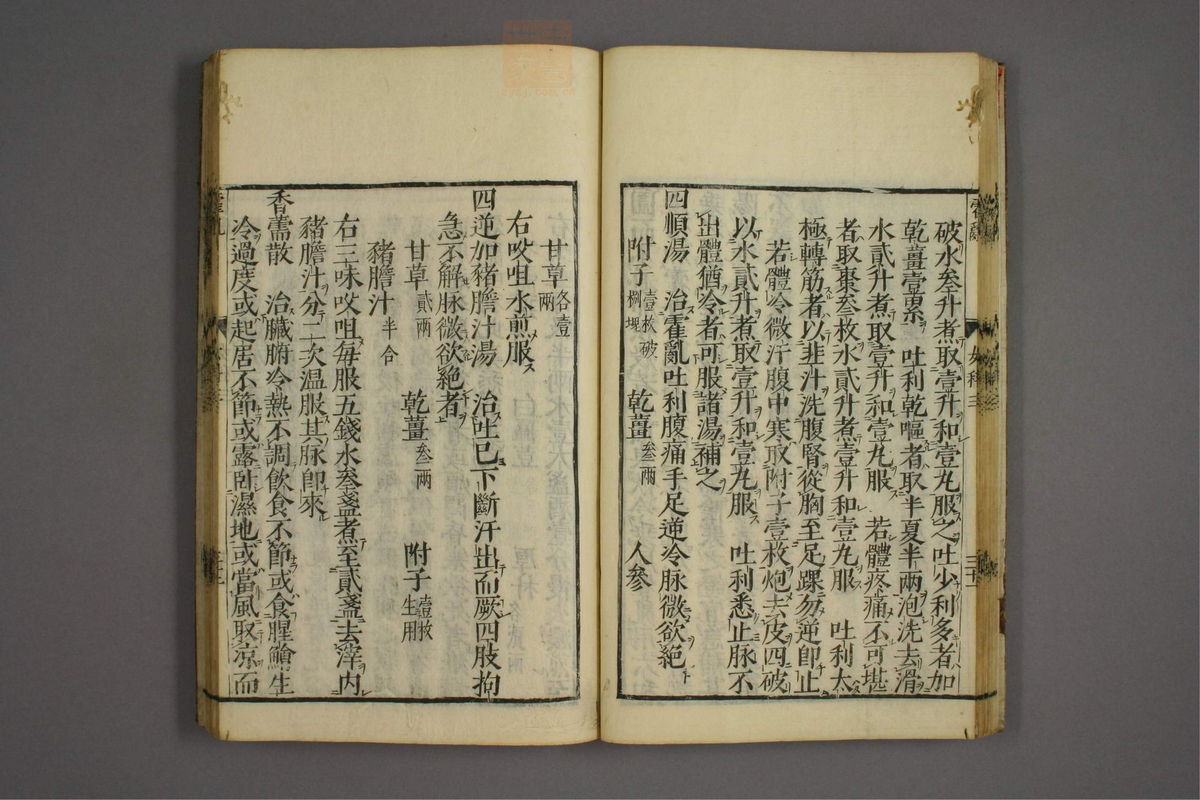 破水叁升煮取壹升和壹丸服之吐少利多者加
乾薑壹累　吐利乾嘔者取半夏半兩泡洗去滑
水貳升煮取壹升和壹丸服　若體疼痛不可堪
者取棗叁枚水貳升煮壹升和壹丸服　吐利太
極轉筋者以韭汁洗腹腎從胸至足踝勿逆卽止
若體冷微汗腹中寒取附子壹枚炮去皮四破
以水貳升煮取壹升和壹丸服　吐利悉止脉不
出體猶冷者可服諸湯補之
四順湯　治霍亂吐利腹痛手足逆冷脉微欲絕
附子壹枚破捌塊　乾薑叁兩　人參
甘草各壹兩
右㕮咀水煎服
四逆加豬膽汁湯　治吐巳下斷汗出而厥四肢拘
急不解脉微欲絕者
甘草貳兩　乾薑叁兩　附子壹枚生用
豬膽汁半合
右三味㕮咀每服五錢水叁盞煮至貳盞去滓内
豬膽汁分二次温服其脉卽來
香薷散　治臟腑冷熱不調飲食不節或食腥鱠生
冷過度或起居不節或露卧濕地或當風取凉而